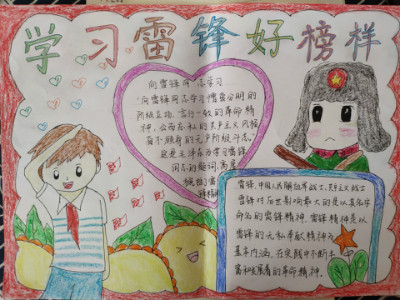 学习雷锋好榜样
向雷锋同志学习
向雷锋同志学习憎爱分明的
阶级立场、言行一致的革命精
神、公而忘私的共产主义风格
奋不顾身的无产阶级斗志。
这是
学习雷锋
同志的题词
雷锋，中国人民解放军战士，共产主义战士
雷锋对后世影响最大的是以其名字
命名的雷锋精神，雷锋精神是以
雷锋的无私奉献精神为
基本内涵，在实践中不断丰
富和发展着的革命精神。